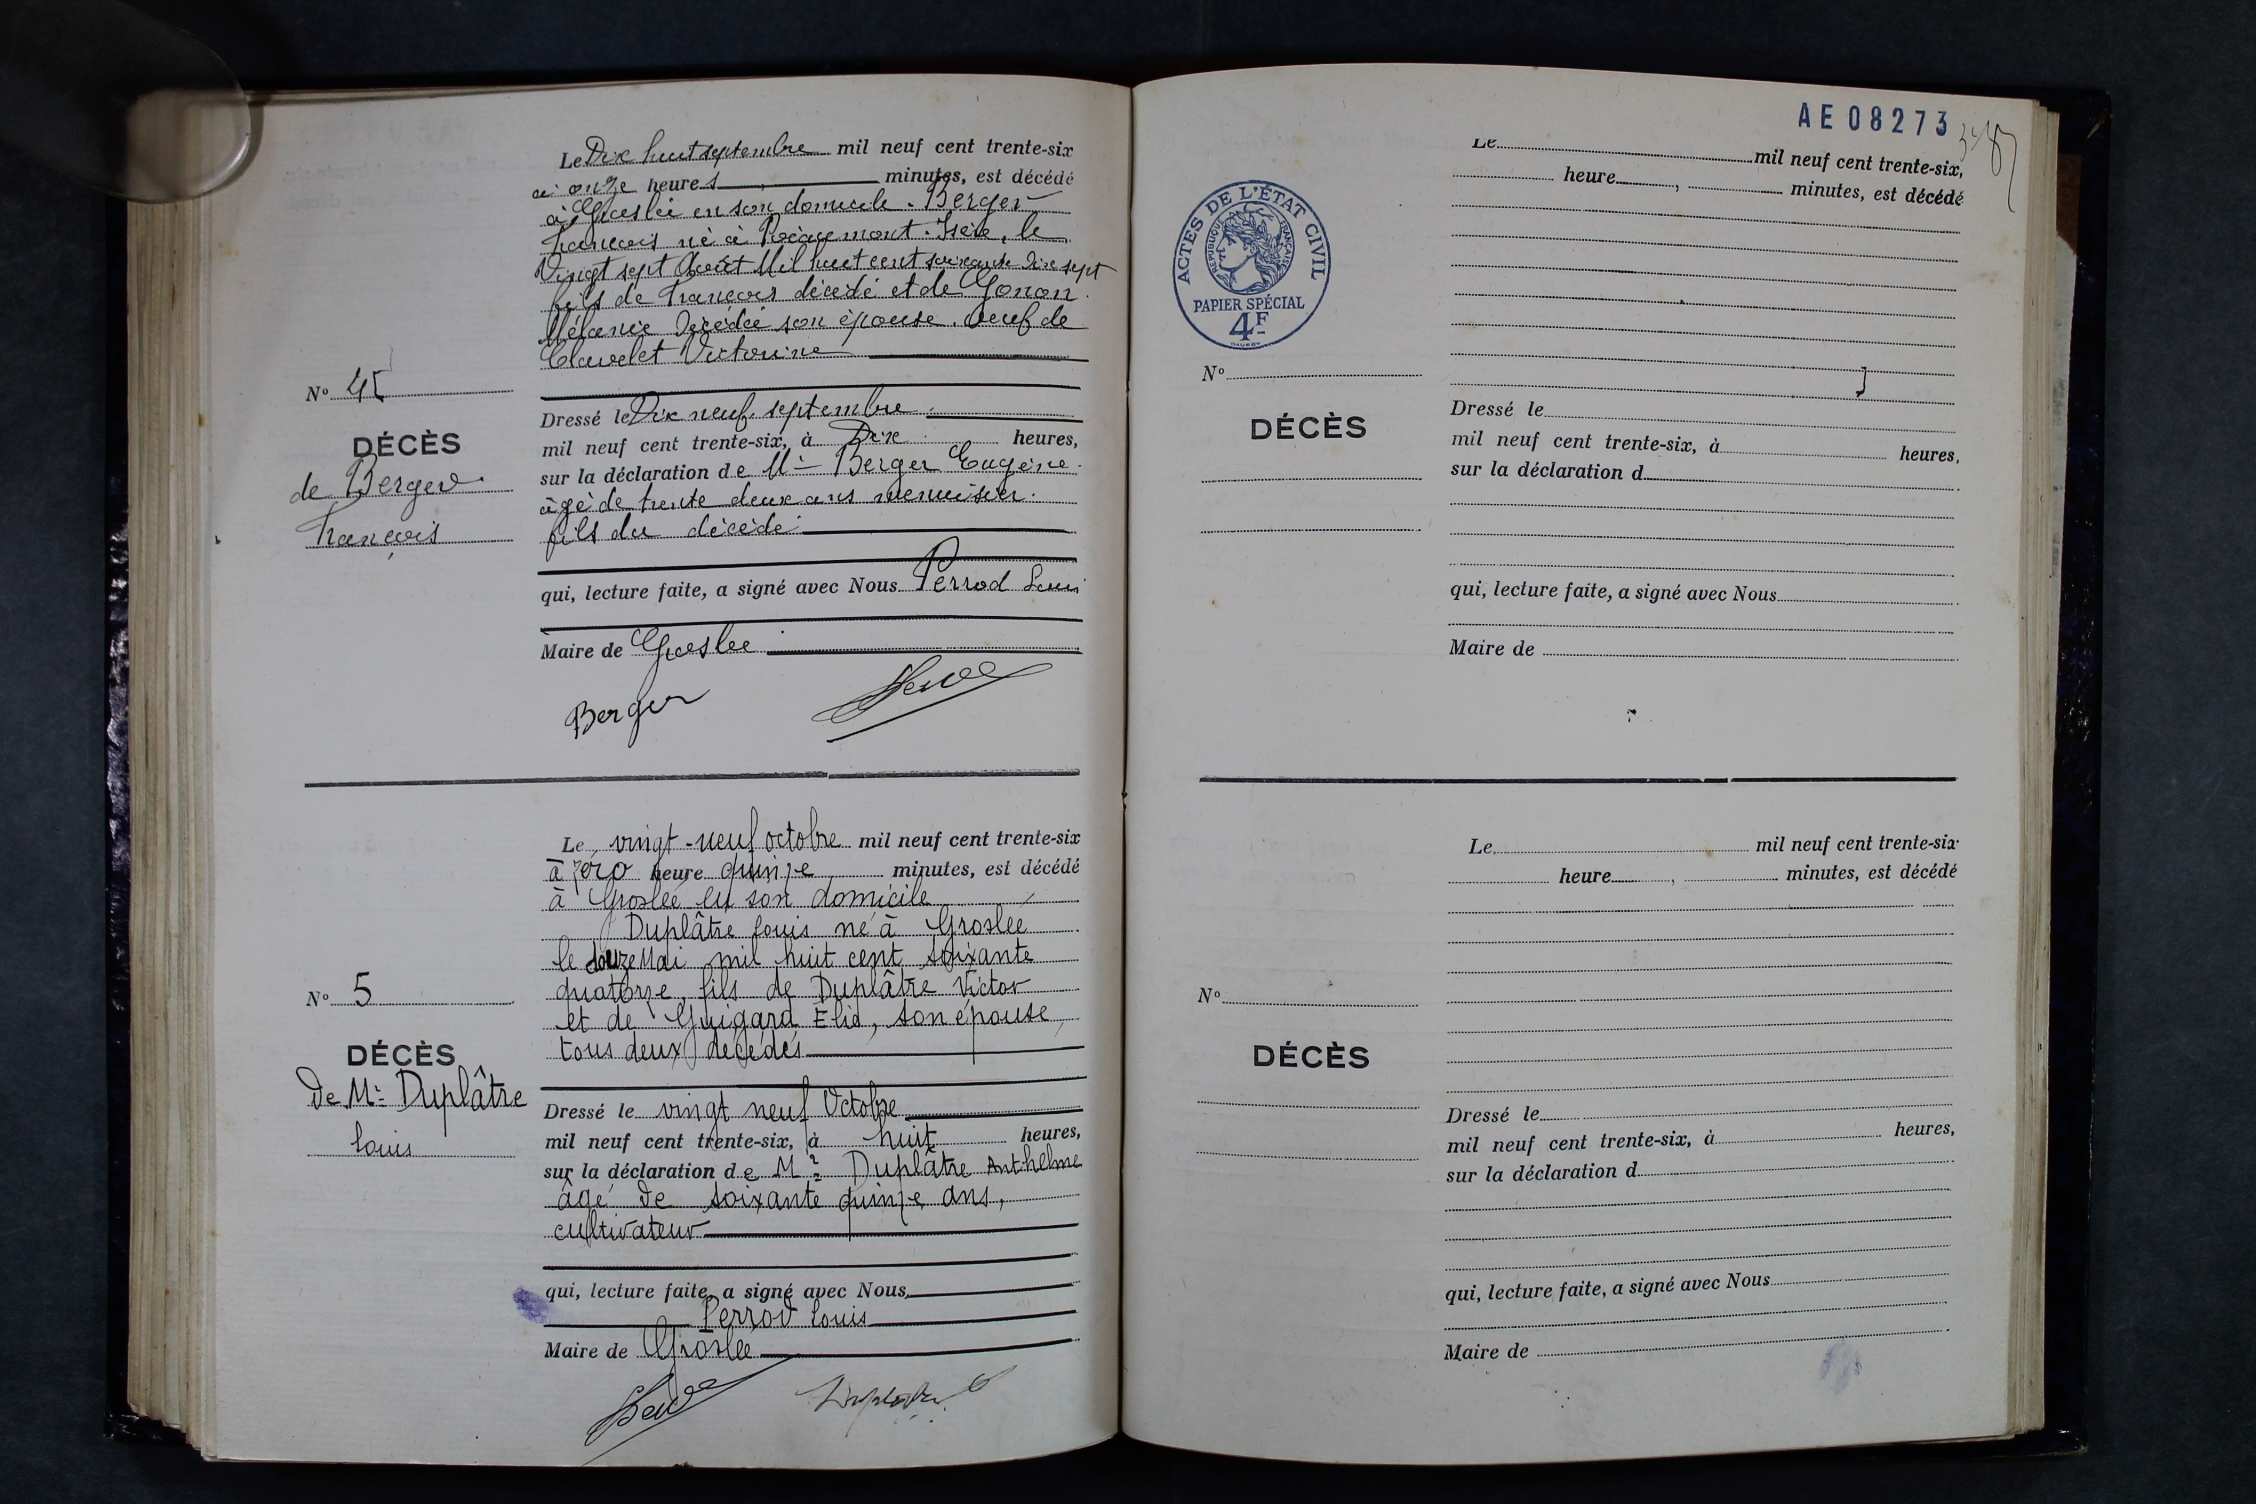 Le Dix huit septembre mil neuf cent trente-six
à onze heures minutes, est décédé
à Groslée en son domicile. Berger
François né à Isère, le
Vingt sept Août Mil huit cent soixante Dix sept
fils de François décédé et de Gonon
Mélanie Décédée son épouse. veuf de
Clavelet Victorine
Nº 4
DÉCÈS
de Berger
François
Dressé le Dix neuf septembre
mil neuf cent trente-six, à Dix heures,
sur la déclaration de Mr Berger Eugène
âgé de trente deux ans menuisier.
fils du décédé
qui, lecture faite, a signé avec Nous Perrod Louis
Maire de Groslée
Berger
Le vingt-neuf octobre mil neuf cent trente-six
à zéro heure quinze minutes, est décédé
à Groslée en son domicile
Duplâtre Louis né à Groslée
le douze Mai mil huit cent soixante
quatorze, fils de Duplâtre Victor
et de Guigard Élid, son épouse,
tous deux décédés
Nº 5
DÉCÈS
De Mr Duplâtre
Louis
Dressé le vingt neuf Octobre
mil neuf cent trente-six, à huit heures,
sur la déclaration de Mr Duplâtre Anthelme
âgé de soixante quinze ans,
cultivateur
qui, lecture faite, a signé avec Nous
Perrod Louis
Maire de Groslée
AE 08273
ACTES DE L'ÉTAT CIVIL
RÉPUBLIQUE FRANÇAISE
PAPIER SPÉCIAL
4F
Le mil neuf cent trente-six,
heure , minutes, est décédé
Nº
DÉCÈS
Dressé le
mil neuf cent trente-six, à heures,
sur la déclaration d
qui, lecture faite, a signé avec Nous
Maire de
Le mil neuf cent trente-six
heure , minutes, est décédé
Nº
DÉCÈS
Dressé le
mil neuf cent trente-six, à heures,
sur la déclaration d
qui, lecture faite, a signé avec Nous
Maire de